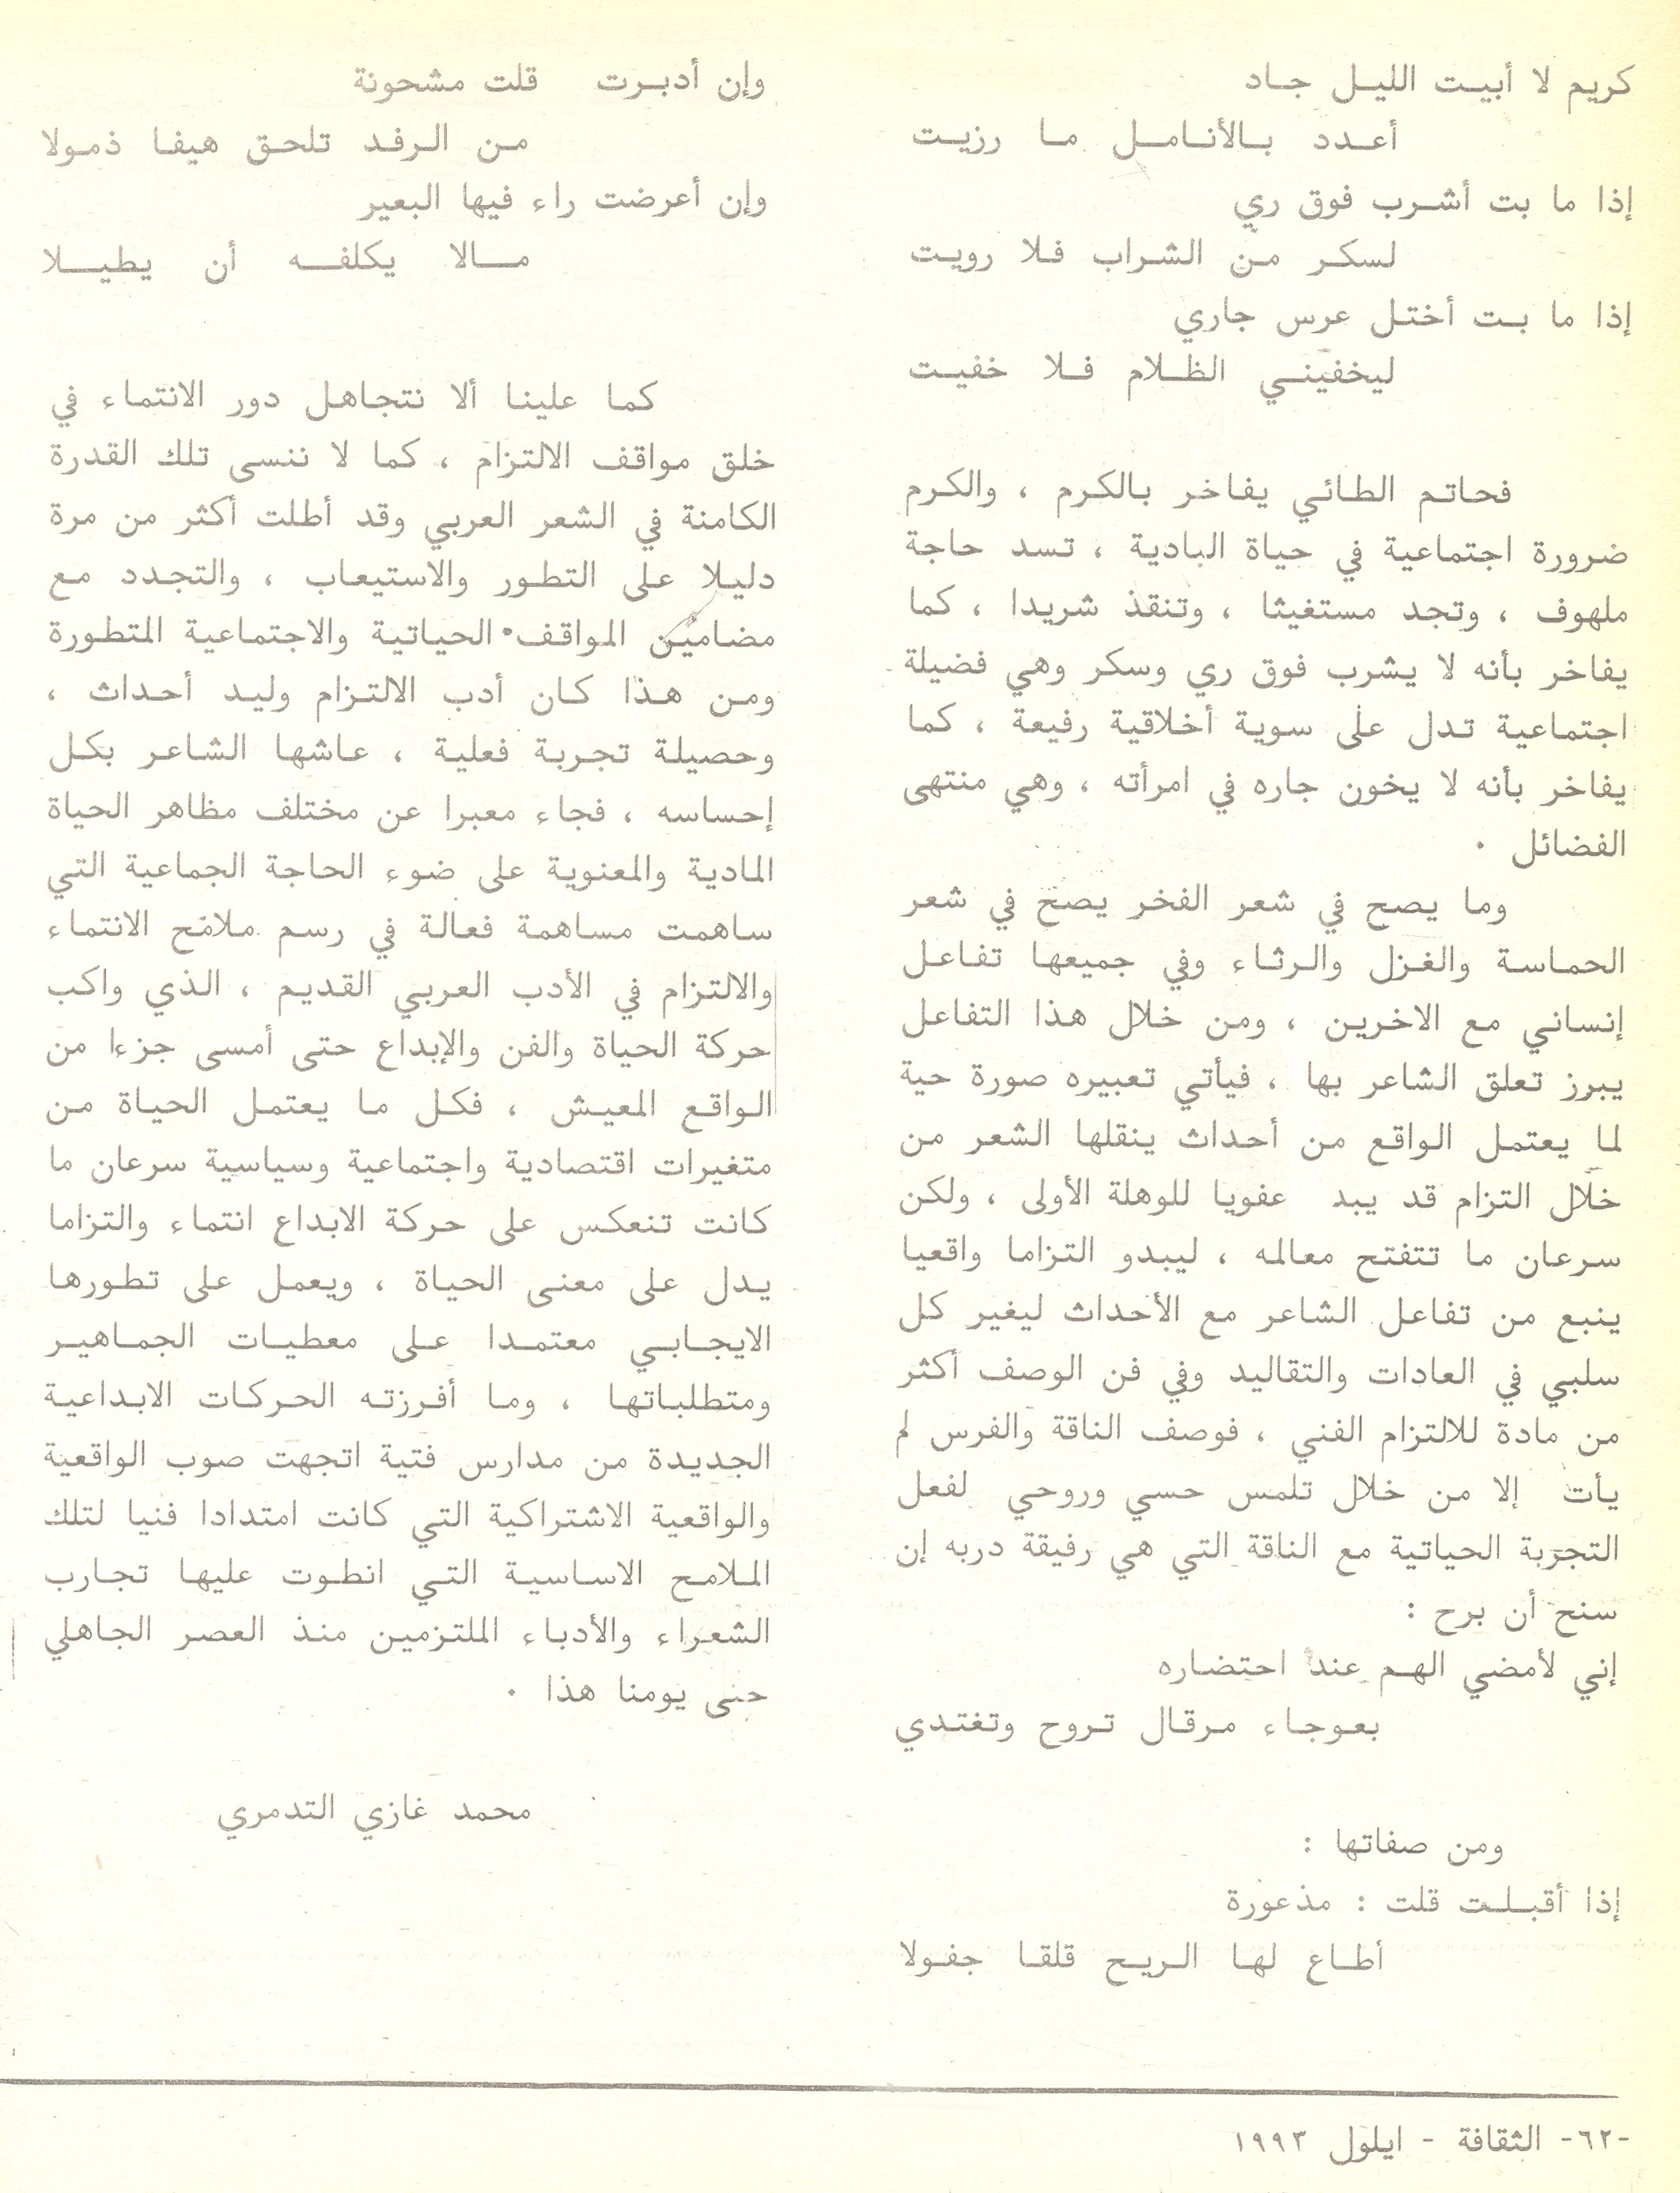 كريم لا أبيت الليل جاد
أعدد بالأنامل ما رزيت
إذا ما بت أشرب فوق ري
لسكر من الشراب فلا رويت
إذا ما بت أختل عرس جاري
ليخفيني الظلام فلا خفيت
فحاتم الطائي يفاخر بالكرم ، والكرم
ضرورة اجتماعية في حياة البادية ، تسد حاجة
ملهوف ، وتجد مستغيثا ، وتنقذ شريدا ، كما
يفاخر بأنه لا يشرب فوق ري وسكر وهي فضيلة
اجتماعية تدل على سوية أخلاقية رفيعة ، كما
يفاخر بأنه لا يخون جاره في امرأته ، وهي منتهى
الفضائل .
وما يصح في شعر الفخر يصح في شعر
الحماسة والغزل والرثاء وفي جميعها تفاعل
إنساني مع الاخرين ، ومن خلال هذا التفاعل
يبرز تعلق الشاعر بها ، فيأتي تعبيره صورة حية
لما يعتمل الواقع من أحداث ينقلها الشعر من
خلال التزام قد يبد عفويا للوهلة الأولى ، ولكن
سرعان ما تتفتح معالمه ، ليبدو التزاما واقعيا
ينبع من تفاعل الشاعر مع الأحداث ليغير كل
سلبي في العادات والتقاليد وفي فن الوصف أكثر
من مادة للالتزام الفني ، فوصف الناقة والفرس لم
يأت إلا من خلال تلمس حسي وروحي لفعل
التجربة الحياتية مع الناقة التي هي رفيقة دربه إن
سنح أن برح :
إني لأمضي الهم عند احتضاره
بعوجاء مرقال تروح وتغتدي
ومن صفاتها :
إذا أقبلت قلت : مذعورة
أطاع لها الريح قلقا جفولا
وإن أدبرت قلت مشحونة
من الرفد تلحق هيفا ذمولا
وإن أعرضت راء فيها البعير
مالا يكلفه أن يطيلا
كما علينا ألا نتجاهل دور الانتماء في
خلق مواقف الالتزام ، كما لا ننسى تلك القدرة
الكامنة في الشعر العربي وقد أطلت أكثر من مرة
دليلا على التطور والاستيعاب ، والتجدد مع
مضامين المواقف الحياتية والاجتماعية المتطورة
ومن هذا كان أدب الالتزام وليد أحداث ،
وحصيلة تجربة فعلية ، عاشها الشاعر بكل
إحساسه ، فجاء معبرا عن مختلف مظاهر الحياة
المادية والمعنوية على ضوء الحاجة الجماعية التي
ساهمت مساهمة فعالة في رسم ملامح الانتماء
والالتزام في الأدب العربي القديم ، الذي واكب
حركة الحياة والفن والإبداع حتى أمسى جزءا من
الواقع المعيش ، فكل ما يعتمل الحياة من
متغيرات اقتصادية واجتماعية وسياسية سرعان ما
كانت تنعكس على حركة الابداع انتماء والتزاما
يدل على معنى الحياة ، ويعمل على تطورها
الايجابي معتمدا على معطيات الجماهير
ومتطلباتها ، وما أفرزته الحركات الابداعية
الجديدة من مدارس فتية اتجهت صوب الواقعية
والواقعية الاشتراكية التي كانت امتدادا فنيا لتلك
الملامح الاساسية التي انطوت عليها تجارب
الشعراء والأدباء الملتزمين منذ العصر الجاهلي
حتى يومنا هذا .
محمد غازي التدمري
-٦٢- الثقافة - ايلول ١٩٩٣